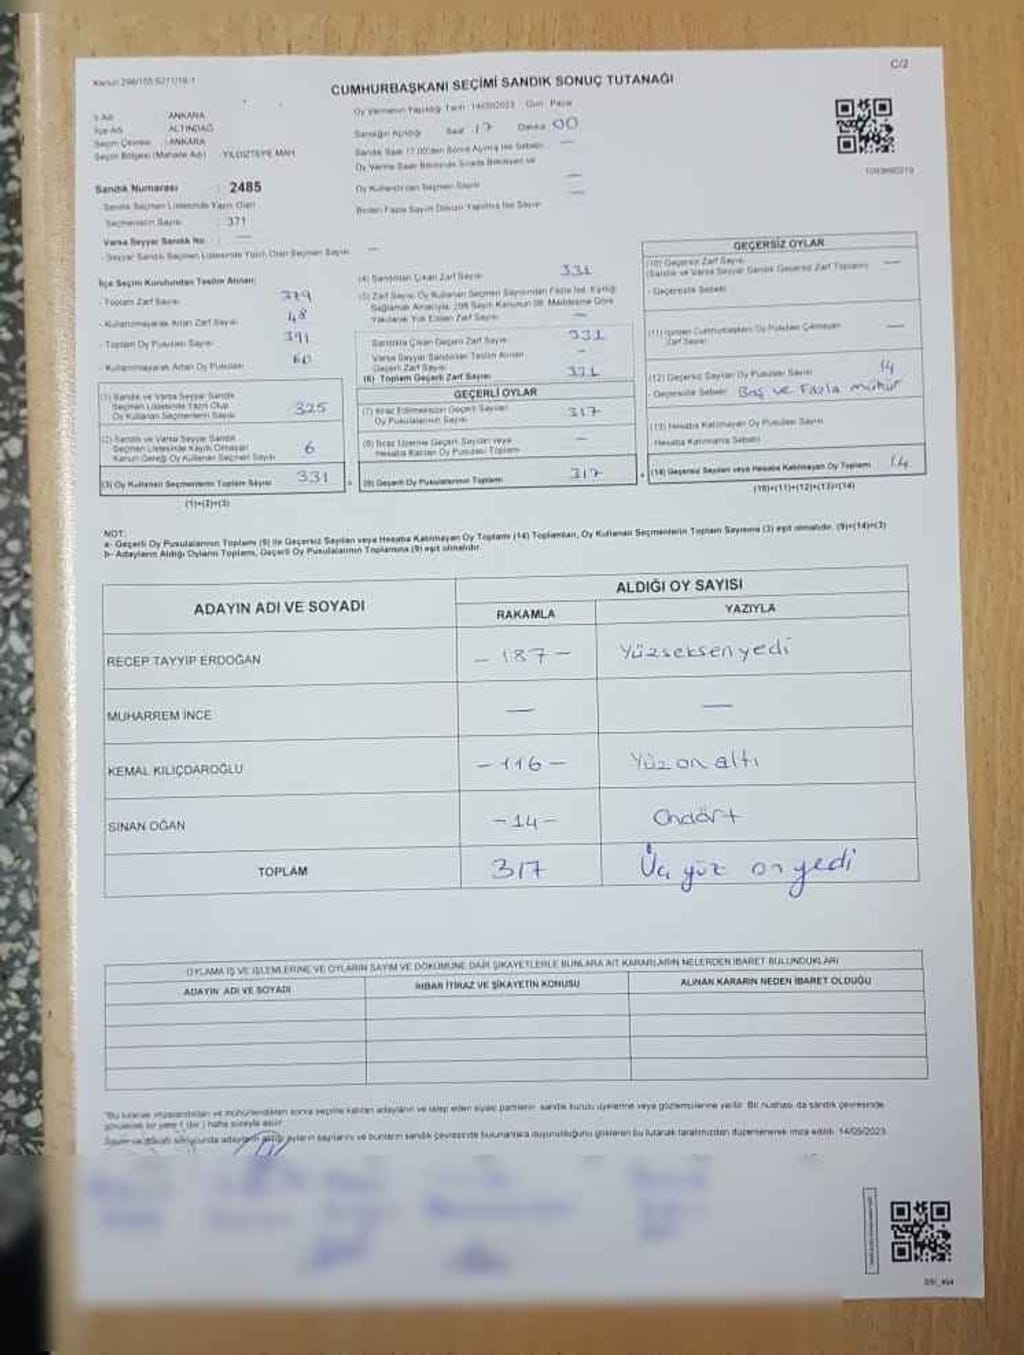 Kanun 298/105 5271/18-1
C/2
CUMHURBAŞKANI SEÇİMİ SANDIK SONUÇ TUTANAĞI
İl Adı : ANKARA
İlçe Adı : ALTINDAĞ
Seçim Çevresi : ANKARA
Seçim Bölgesi (Mahalle Adı) : YILDIZTEPE MAH.
Oy Vermenin Yapıldığı Tarih 14/05/2023 Gün Pazar
Sandığın Açıldığı Saat 17 Dakika 00
Sandık Saat 17.00'den Sonra Açılmış İse Sebebi —
Oy Verme Saati Bitiminde Sırada Bekleyen ve
Oy Kullandırılan Seçmen Sayısı —
Birden Fazla Sayım Döküm Yapılmış İse Sayısı —
Sandık Numarası : 2485
- Sandık Seçmen Listesinde Yazılı Olan
Seçmenlerin Sayısı : 371
Varsa Seyyar Sandık No : —
- Seyyar Sandık Seçmen Listesinde Yazılı Olan Seçmen Sayısı —
İlçe Seçim Kurulundan Teslim Alınan;
- Toplam Zarf Sayısı 379
- Kullanılmayarak Artan Zarf Sayısı 48
- Toplam Oy Pusulası Sayısı 391
- Kullanılmayarak Artan Oy Pusulası 60
(1) Sandık ve Varsa Seyyar Sandık
Seçmen Listesinde Yazılı Olup
Oy Kullanan Seçmenlerin Sayısı 325
(2) Sandık ve Varsa Seyyar Sandık
Seçmen Listesinde Kayıtlı Olmayan
Kanun Gereği Oy Kullanan Seçmen Sayısı 6
(3) Oy Kullanan Seçmenlerin Toplam Sayısı 331
(1)+(2)=(3)
(4) Sandıktan Çıkan Zarf Sayısı 331
(5) Zarf Sayısı Oy Kullanan Seçmen Sayısından Fazla İse, Eşitliği
Sağlamak Amacıyla, 298 Sayılı Kanunun 98. Maddesine Göre
Yakılarak Yok Edilen Zarf Sayısı —
Sandıkta Çıkan Geçerli Zarf Sayısı 331
Varsa Seyyar Sandıktan Teslim Alınan
Geçerli Zarf Sayısı —
(6) Toplam Geçerli Zarf Sayısı 331
GEÇERLİ OYLAR
(7) İtiraz Edilmeksizin Geçerli Sayılan
Oy Pusulalarının Sayısı 317
(8) İtiraz Üzerine Geçerli Sayılan veya
Hesaba Katılan Oy Pusulası Toplamı —
(9) Geçerli Oy Pusulalarının Toplamı 317
GEÇERSİZ OYLAR
(10) Geçersiz Zarf Sayısı
(Sandık ve Varsa Seyyar Sandık Geçersiz Zarf Toplamı) —
- Geçersizlik Sebebi:
(11) İçinden Cumhurbaşkanı Oy Pusulası Çıkmayan
Zarf Sayısı —
(12) Geçersiz Sayılan Oy Pusulası Sayısı 14
- Geçersizlik Sebebi: Boş ve Fazla mühür
(13) Hesaba Katılmayan Oy Pusulası Sayısı
Hesaba Katılmama Sebebi
(14) Geçersiz Sayılan veya Hesaba Katılmayan Oy Toplamı 14
(10)+(11)+(12)+(13)=(14)
NOT:
a- Geçerli Oy Pusulalarının Toplamı (9) ile Geçersiz Sayılan veya Hesaba Katılmayan Oy Toplamı (14) Toplamları, Oy Kullanan Seçmenlerin Toplam Sayısına (3) eşit olmalıdır. (9)+(14)=(3)
b- Adayların Aldığı Oyların Toplamı, Geçerli Oy Pusulalarının Toplamına (9) eşit olmalıdır.
ADAYIN ADI VE SOYADI
ALDIĞI OY SAYISI
RAKAMLA YAZIYLA
RECEP TAYYİP ERDOĞAN - 187 - Yüzseksenyedi
MUHARREM İNCE — —
KEMAL KILIÇDAROĞLU - 116 - Yüz on altı
SİNAN OĞAN - 14 - Ondört
TOPLAM 317 Üç yüz on yedi
OYLAMA İŞ VE İŞLEMLERİNE VE OYLARIN SAYIM VE DÖKÜMÜNE DAİR ŞİKAYETLERLE BUNLARA AİT KARARLARIN NELERDEN İBARET BULUNDUKLARI
ADAYIN ADI VE SOYADI İHBAR İTİRAZ VE ŞİKAYETİN KONUSU ALINAN KARARIN NEDEN İBARET OLDUĞU
"Bu tutanak imzalandıktan ve mühürlendikten sonra seçime katılan adayların ve talep eden siyasi partilerin sandık kurulu üyelerine veya gözlemcilerine verilir. Bir nüshası da sandık çevresinde
görülebilir bir yere 1 (bir) hafta süreyle asılır.